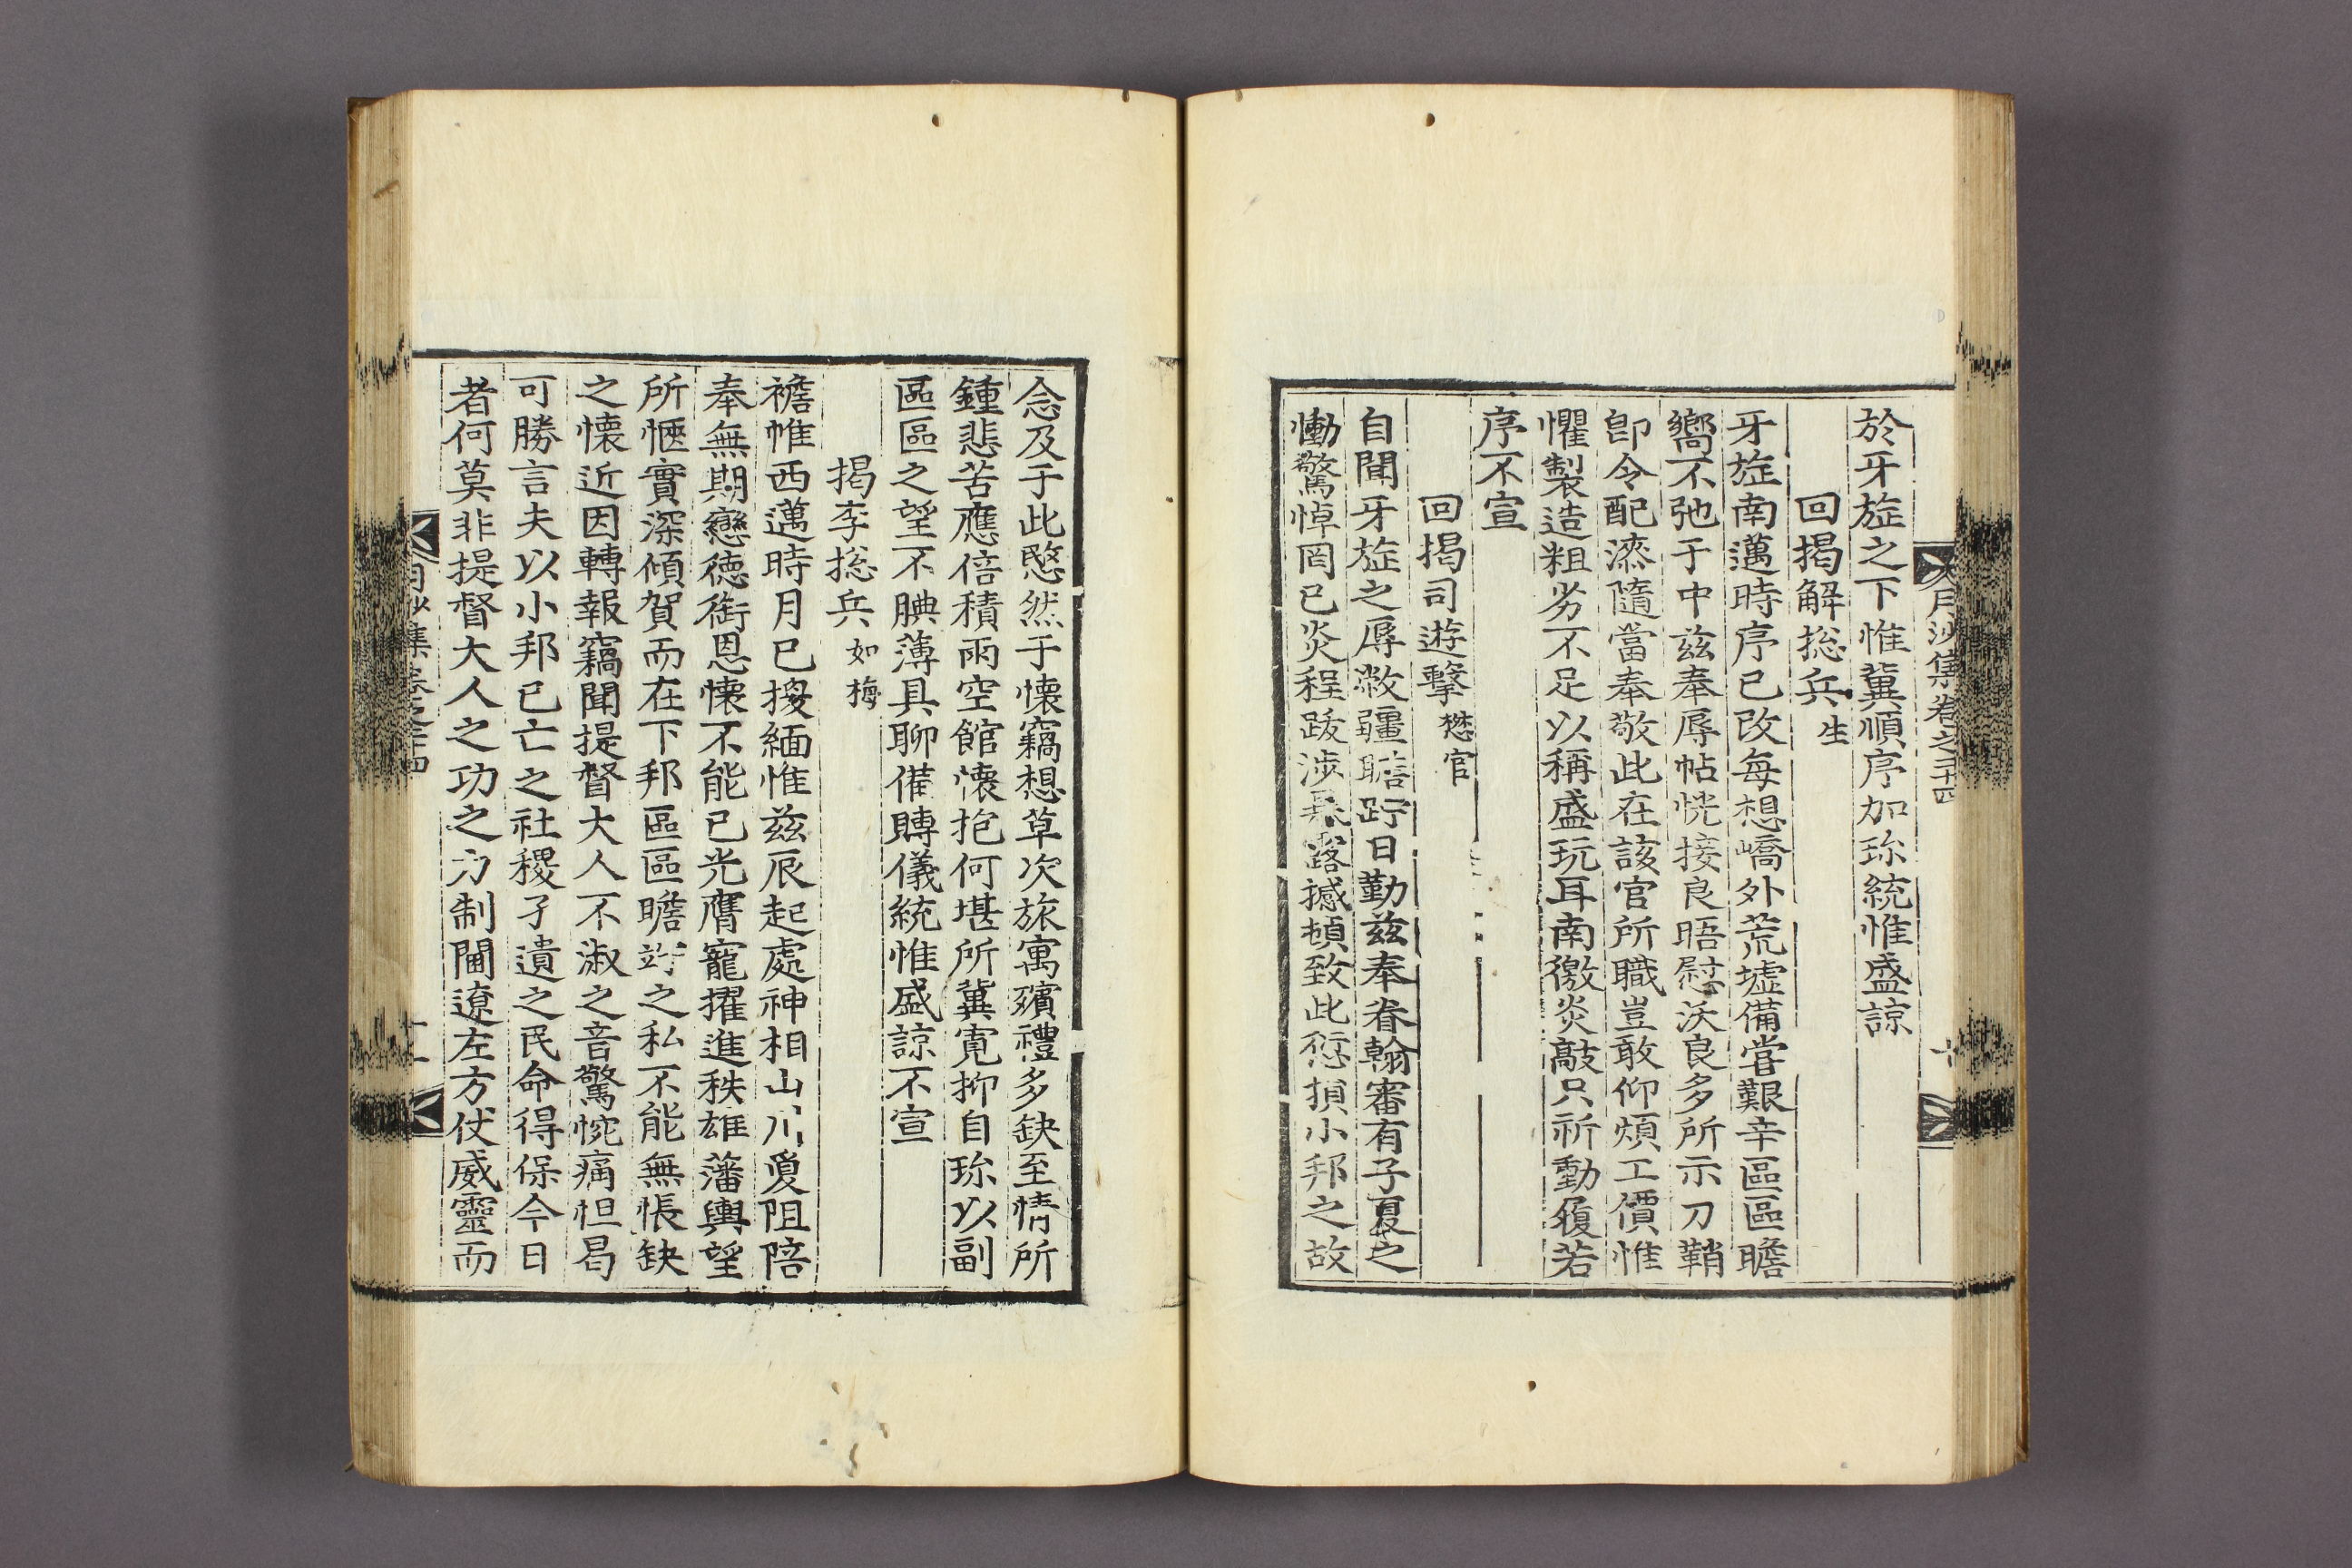 月沙集卷之三十四
於牙旋之下惟冀順序加珎統惟盛諒
回揭解摠兵 生
牙旋南邁時序已改每想嶠外荒墟備嘗艱辛區區瞻
嚮不弛于中兹奉辱帖恍接良晤慰沃良多所示刀鞘
卽令配㓒隨當奉敬此在該官所職豈敢仰煩工價惟
懼製造粗劣不足以稱盛玩耳南徼炎敲只祈動履若
序不宣
回揭司遊擊 懋官
自聞牙旋之辱敝疆瞻跂日勤兹奉眷翰審有子夏之
慟驚悼罔已炎程跋涉暴露撼頓致此愆損小邦之故
念及于此愍然于懷竊想草次旅寓殯禮多缺至情所
鍾悲苦應倍積雨空館懷抱何堪所冀寬抑自珎以副
區區之望不腆薄具聊備賻儀統惟盛諒不宣
揭李摠兵 如梅
襜帷西邁時月已換緬惟兹辰起處神相山川敻阻陪
奉無期戀德銜恩懷不能已光膺寵擢進秩雄藩輿望
所愜實深傾賀而在下邦區區瞻跂之私不能無悵缺
之懷近因轉報竊聞提督大人不淑之音驚惋痛怛曷
可勝言夫以小邦已亡之社稷孑遺之民命得保今日
者何莫非提督大人之功之力制閫遼左方仗威靈而
十一